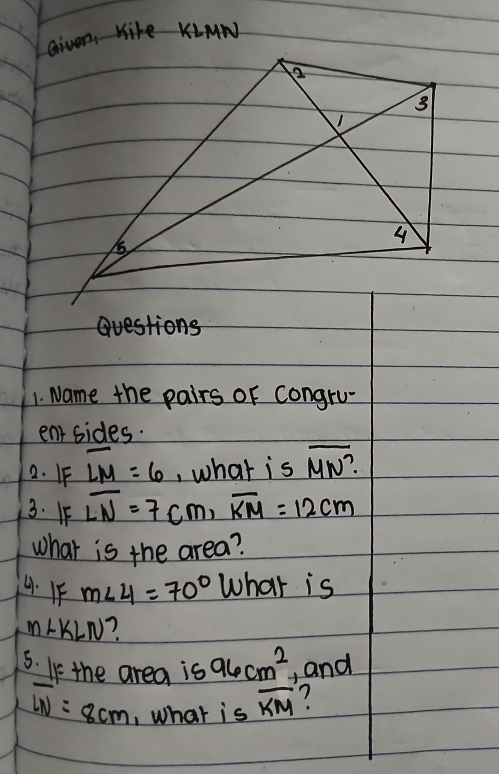 Given, Kite KLMN
2
3
1
4
5
Questions
1. Name the pairs of Congru-
ent sides.
2. If LM = 6, what is MN?
3. If LN = 7cm, KM = 12cm
what is the area?
4. If m∠4 = 70° What is
m∠KLN?
5. If the area is 96cm², and
LN = 8cm, what is KM?